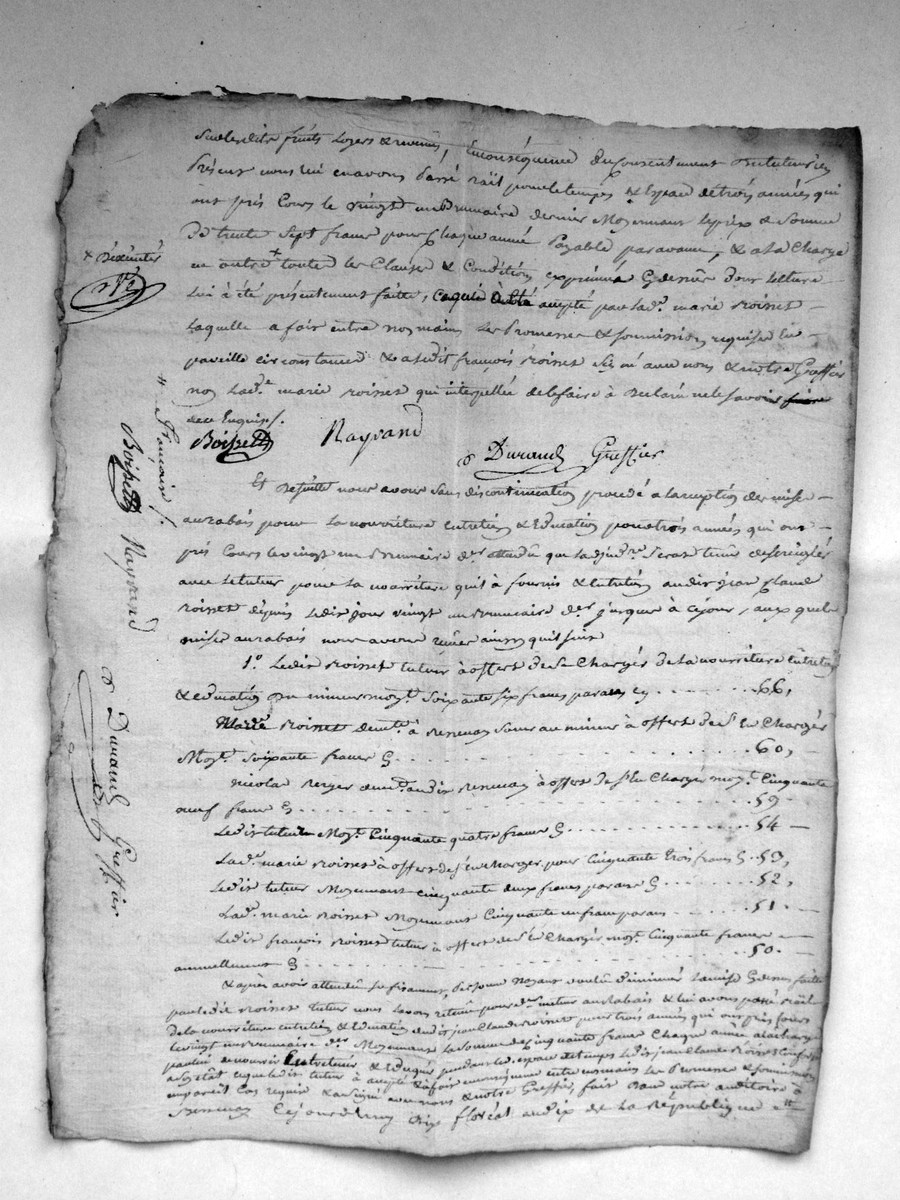 fruits Loyers & revenus, En conséquence du Consentement Du tuteur icy
Présent nous lui en avons Passé bail pour le temps & Espace de trois années qui
ont pris Cours le vingt un Brumaire dernier Moyennant le prix & Somme
De trente Sept francs pour Chaque année Payable par avance, & a la Charge
en outre + toute les Clauses & Conditions exprimées Cy dessus dont lecture
Lui à été présentement faite, ce qui à été accepté par lad. marie Roisset
Laquelle a fait entre nos mains les Promesses & soumissions requises En
pareille circonstance & a ledit françois Roisset Signé avec nous & notre Greffier
non Lad. marie Roisset qui interpellée de le faire à Déclaré ne le savoir
de ce Enquise /.
Boissett Nayrand Durand Greffier
Et De suite nous avons Sans discontinuation procédé a la réception des mises
au rabais pour La nourriture entretien & Education pour trois années qui ont
pris Cours le vingt un Brumaire der attendu que
avec le tuteur pour la nourriture qu'il à fournis & Entretien audit jean Claude
Roisset depuis ledit jour vingt un Brumaire der jusque à ce jour, auxquelles
mises au rabais nous avons ainsy qu'il suit
1.º Ledit Roisset tuteur à offert de se Charger de la nourriture Entretien
& Education du mineur moy.t Soixante six francs par an cy ........ 66,
Marie Roisset demt. à Renevas Sœur au mineur à offert de s'en Charger
Moy.t Soixante francs Cy ........ 60,
Nicolas Berger demt. audit Renevas à offert de s'en Charger moy.t Cinquante
neuf francs Cy ........ 59
Ledit tuteur Moy.t Cinquante quatre francs Cy ........ 54
Lad. marie Roisset à offert de s'en charger pour Cinquante trois francs Cy . 53,
Ledit tuteur Moyennant cinquante deux francs par an Cy ........ 52,
Lad. marie Roisset Moyennant Cinquante un franc par an ........ 51
Ledit françois Roisset tuteur à offert de s'en Charger moy.t Cinquante francs
annuellement Cy ........ 50.
& après avoir attendu Suffisamment, & personne N'ayant voulu Diminuer la mise Cy dessus faite
par ledit Roisset tuteur nous l'avons retenu pour der metteur au Rabais & lui avons passé Bail
de la nourriture entretien & Education dudit jean Claude Roisset pour trois années qui ont pris Cours
le vingt un Brumaire der Moyennant la Somme de Cinquante francs Chaque année a la charge
par lui de nourrir Entretenir & Eduquer pendant led. espace de temps ledit jean Claude Roisset
a Son état ce que ledit tuteur à accepté & a fait en conséquence entre nos mains les Promesses & soumissions
en pareil Cas requises & a Signé avec nous & notre Greffier, fait Dans notre auditoire à
Renevas Ce jourd'huy Dix floréal an dix de la République
+ D'éxécuter
" françois /.
Boissett Nayrand
Durand Greffier